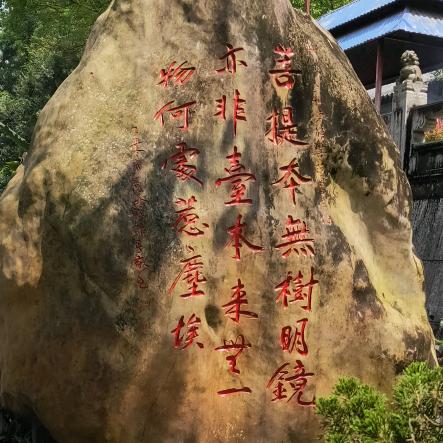 菩提本無樹明鏡
亦非臺本来無一
物何處惹塵埃